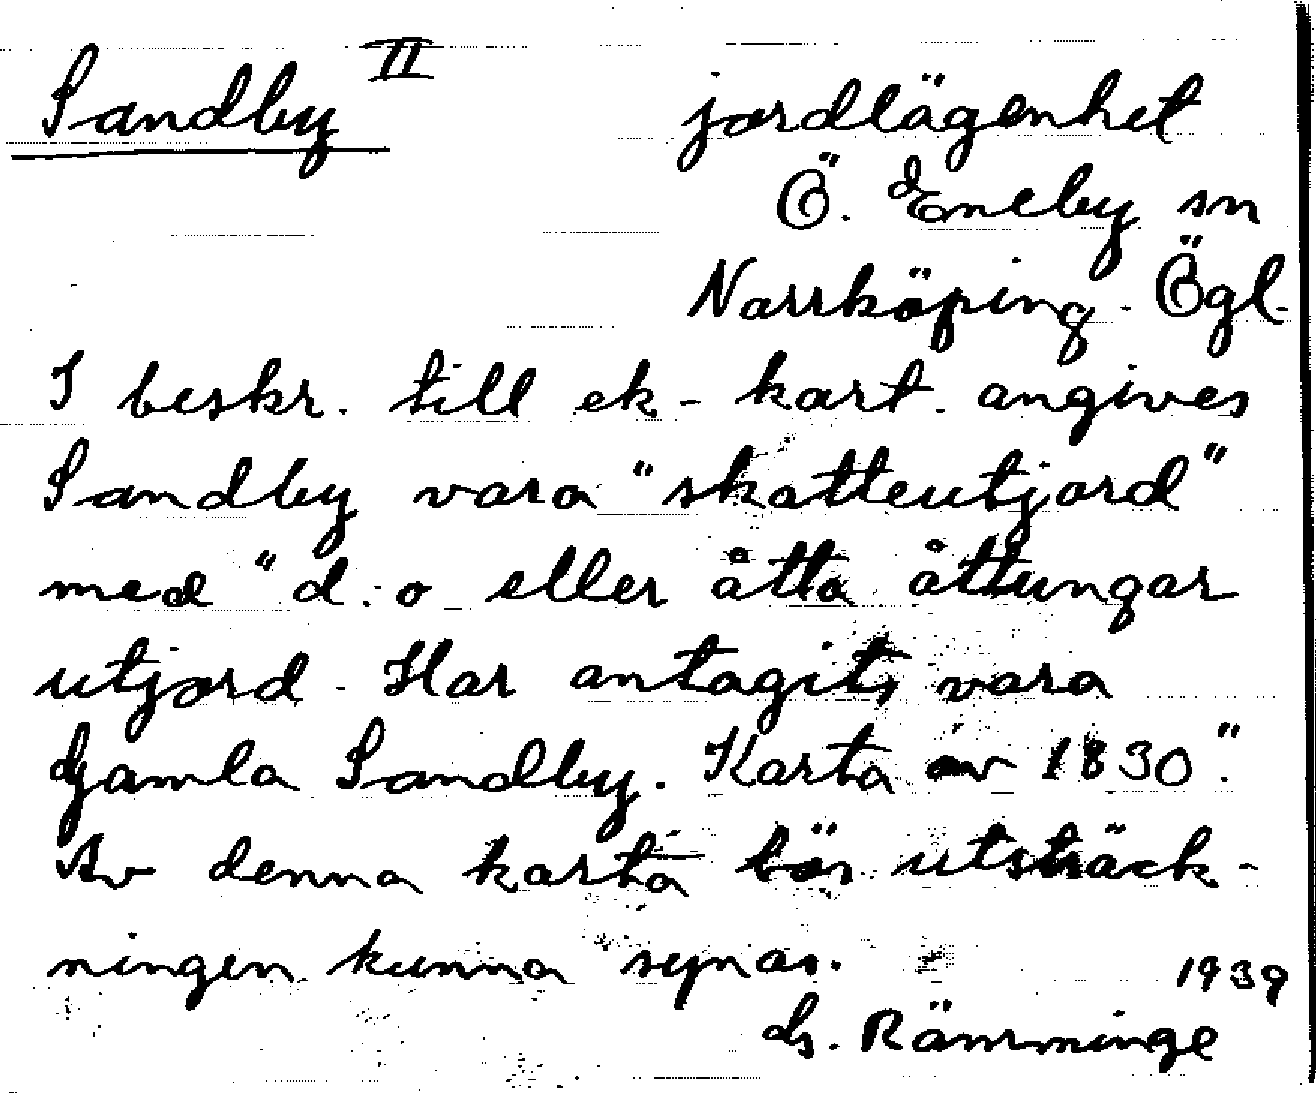 Sandby II jordlägenhet
Ö. Eneby sn
Norrköping. Ögl.
I beskr. till ek-kart. angives
Sandby vara "skatteutjord"
med "d:o eller åtta åttungar
utjord. Har antagits vara
Gamla Sandby. Karta av 1830".
Av denna karta bör utsträck-
ningen kunna synas.
1939
G. Rämminge